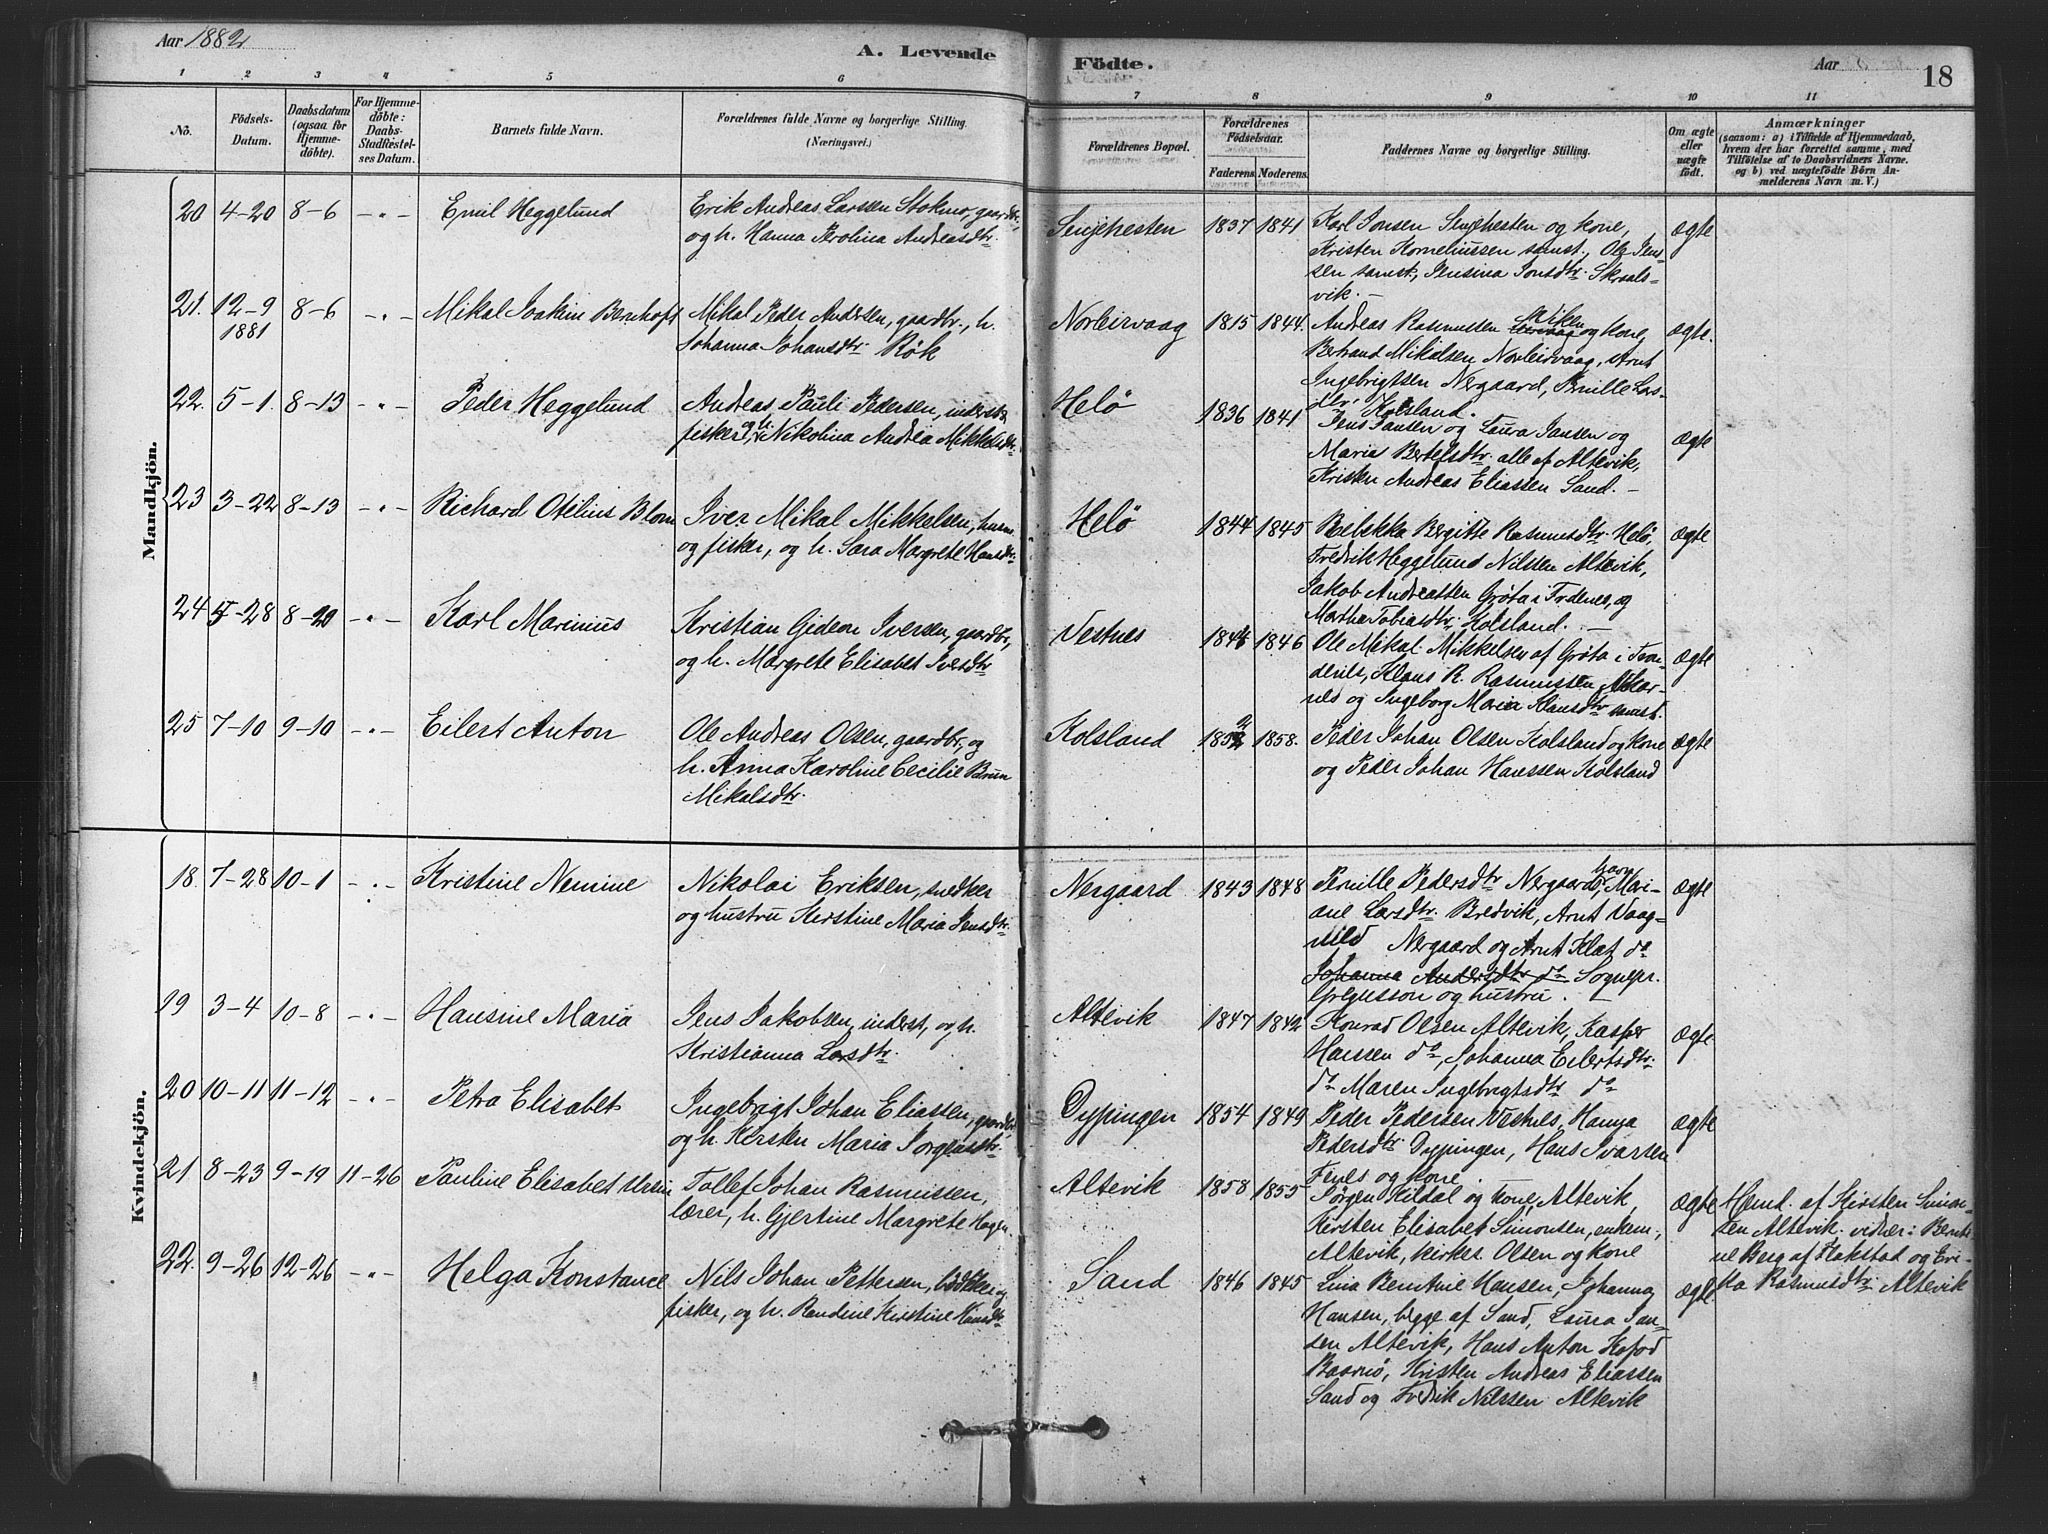 Aar 1882
A. Levende
Födte.
Aar
18
1 2 3 4 5 6 7 8 9 10 11
No.
Födsels-
Datum.
Daabsdatum
(ogsaa for
Hjemme-
döbte).
For Hjemme-
döbte:
Daabs-
Stadfæstel-
ses Datum.
Barnets fulde Navn.
Forældrenes fulde Navne og borgerlige Stilling.
(Næringsvei.)
Forældrenes Bopæl.
Forældrenes
Födselsaar.
Faderens
Moderens.
Faddernes Navne og borgerlige Stilling.
Om ægte
eller
uægte
födt.
Anmærkninger
(saasom: a) i Tilfælde af Hjemmedaab,
hvem der har forrettet samme, med
Tilföielse af to Daabsvidners Navne.
og b) ved uægtefödte Börn An-
melderens Navn m. V.)
Mandkjön.
20 4-20 8-6 -"- Emil Heggelund
Erik Andreas Larsen Stokmo, gaardbr,
og h. Hanna Perolina Andreasdtr.
Senjehesten 1837 1841
Karl Jonsen Senjehesten og kone,
Kristen Korneliussen samst., Ole Jens-
sen samst., Jensina Jonsdtr. Skraals-
vik. –
ægte
21. 12-9 8-6 -"- Mikal Joakim Benhoft
1881
Mikal Peder Andersen, gaardbr., h.
Johanna Johansdtr Rök
Norleirvaag 1815 1844.
Andreas Rasmussen Viken og kone,
Bertrand Mikalsen Norleirvaag, Arnt
Ingebrigtsen Nergaard, Pernille Lars-
dtr Kolsland.
ægte.
22. 5-1. 8-13 -"- Peder Heggelund
Andreas Pauli Pedersen, inderst,
fisker og h. Nikolina Andrea Mikkelsdtr.
Helö 1836 1841
Jens Jansen og Laura Jansen og
Maria Bertelsdtr. alle af Altevik,
Kristen Andreas Eliassen Sand. –
ægte
23 3-22 8-13 -"- Richard Otelius Blom
Iver Mikal Mikkelsen, husm.
og fisker, og h. Sara Margrete Hansdtr.
Helö 1844 1845
Rebekka Bergitte Rasmusdtr. Helö,
Fredrik Heggelund Nilssen Altevik,
Jakob Andreassen Gröta i Trdenes, og
Martha Tobiasdtr. Kolsland. –
ægte
24 5-28 8-20 -"- Karl Marinius
Kristian Gideon Iversen, gaardbr,
og h. Margrete Elisabet Iversdtr
Vestnes 1844 1846
Ole Mikal Mikkelsen af Gröta i Tron-
denes, Klaus R. Rasmussen
og Ingeborg Maria Klausdtr samst.
ægte
25 7-10 9-10 -"- Eilert Anton
Ole Andreas Olsen, gaardbr, og
h. Anna Karoline Cecilie Brun
Mikalsdtr.
Kolsland 1852 1858.
Peder Johan Olsen Kolsland og kone
og Peder Johan Hanssen Kolsland
ægte
Kvindekjön.
18. 7-28 10-1 -"- Kristine Nemine
Nikolai Eriksen, snedker
og hustru Kerstine Maria Jensdtr.
Nergaard 1843 1848
Pernille Pedersdtr Nergaard, Mari-
ane Larsdtr. Bredvik, Arnt Vaag-
Nergaard og Arnt Klæt do
Johanna Andersdtr do Sognepr.
Gregusson og hustru. –
ægte
19 3-4 10-8 -"- Hansine Maria
Jens Jakobsen, inderst, og h.
Kristianna Larsdtr.
Altevik 1847 1842
Konrad Olsen Altevik, Kasper
Hanssen do, Johanna Eilertsdtr.
do Maren Ingebrigtsdtr do
ægte
20 10-11 11-12 -"- Petra Elisabet
Ingebrigt Johan Eliassen, gaardbr
og h. Kersten Maria Jorgensdtr.
Dypingen 1854 1849
Peder Pedersen Vestnes, Hanna
Pedersdtr. Dypingen, Hans Ivarsen
Fenes og kone.
ægte
21 8-23 9-19 11-26 Pauline Elisabet Ursin
Tollef Johan Rasmussen,
lærer, h. Gjertine Margrete Hagen
Altevik 1858 1855
Jörgen Kildal og kone, Altevik,
Kersten Elisabet Simonsen, enkem,
Altevik, kirkes. Olsen og kone
ægte
Hjemd. af Kirsten Simon-
sen Altevik. vidner: Bent-
ne Berg af Flakstad og Eri-
ka Rasmusdtr. Altevik
22. 9-26 12-26 -"- Helga Konstance
Nils Johan Pettersen, bödtker og
fisker, og h. Randine Kirstine Hansdtr
Sand 1846 1845
Lina Bentine Hansen, Johanna
Hansen, begge af Sand, Laura Jan-
sen Altevik, Hans Anton Kofod
Baarnö, Kristen Andreas Eliassen
Sand og Fredrik Nilssen Altevik
ægte